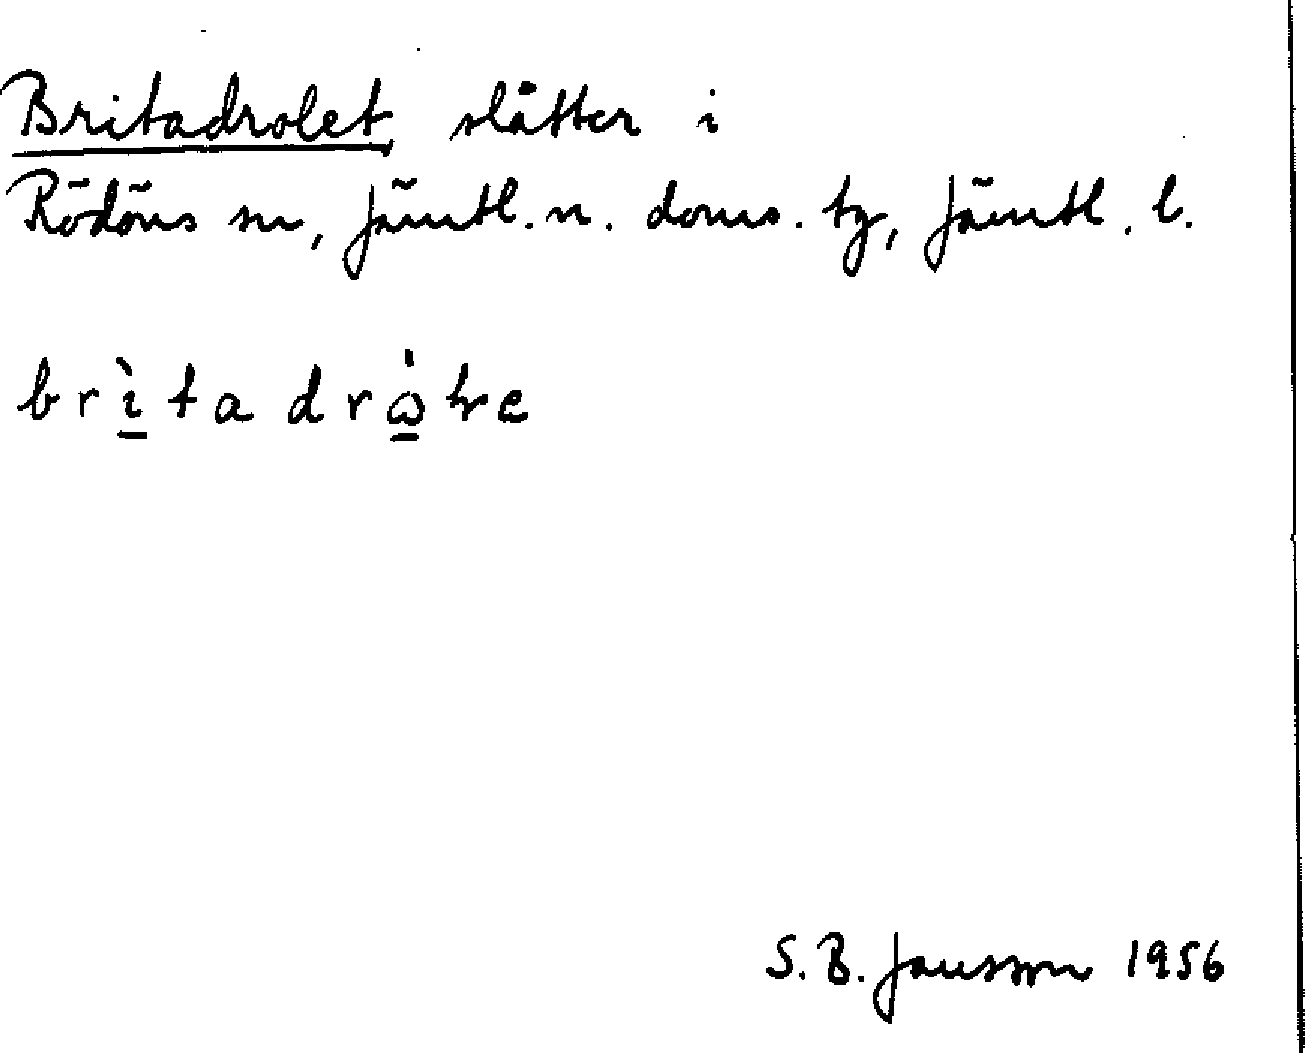 Britadrolet, slåtter i
Rödöns sn, Jämtl. n. doms. tg, Jämtl. l.
brìta drò
S. B. Jansson 1956